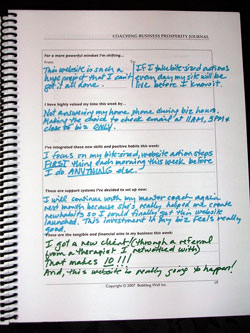 COACHING BUSINESS PROSPERITY JOURNAL
For a more powerful mindset I'm shifting...
From
This website is such a
huge project that I can't
get it all done.
If I take bite-sized actions
every day my site will be
live before I know it.
I have highly valued my time this week by...
Not answering my home phone during biz hours.
Making the choice to check email at 11AM, 3PM &
close to biz ONLY.
I've integrated these new skills and positive habits this week:
I focus on my bite-sized website action steps
FIRST thing each morning this week before
I do ANYTHING else.
These are support systems I've decided to set up now:
I will continue with my mentor coach again
next month because she's really helped me create
new habits so I could finally get this website
launched. This investment in my biz feels really
good.
These are the tangible and financial wins in my business this week:
I got a new client (through a referral
from a therapist I networked with)
That makes 10!!!
And, this website is really going to happen!
Copyright © 2007 Building Wolf Inc.